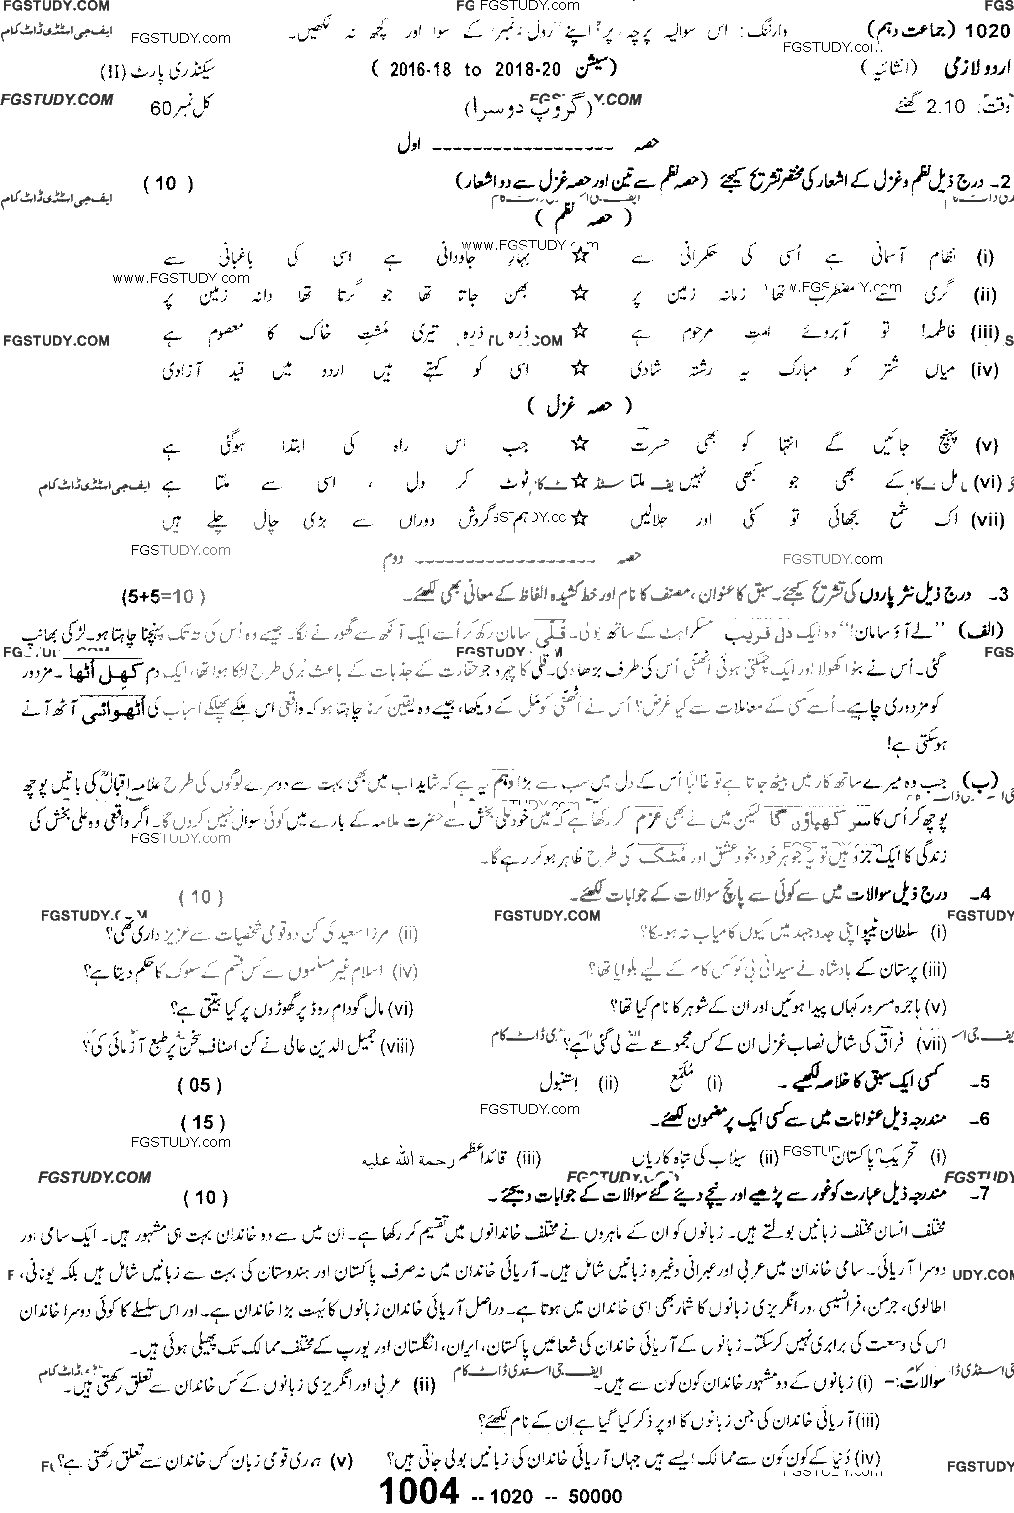 FGSTUDY.COM FG FGSTUDY.COM FGS
1020 (جماعت دہم) وارننگ: اس سوالیہ پرچہ پر اپنے رول نمبر کے سوا اور کچھ نہ لکھیں۔ ایف جی اسٹڈی ڈاٹ کام
FGSTUDY.com FGSTUDY.com
اردو لازمی (انشائیہ) (سیشن 20-2018 to 18-2016) سیکنڈری پارٹ (II)
وقت: 2.10 گھنٹے (گروپ دوسرا) کل نمبر 60
FGSTUDY.COM
حصہ ------------------ اول
2۔ درج ذیل نظم و غزل کے اشعار کی مختصر تشریح کیجئے (حصہ نظم سے تین اور حصہ غزل سے دو اشعار) (10)
ایف جی اسٹڈی ڈاٹ کام
(حصہ نظم)
(i) نظام آسمانی ہے اُسی کی حکمرانی سے ☆ بہار جاودانی ہے اسی کی باغبانی سے
www.FGSTUDY.com
www.FGSTUDY.com
(ii) گرمی سے مضطرب تھا زمانہ زمین پر ☆ بھن جاتا تھا جو گرتا تھا دانہ زمین پر
(iii) فاطمہ! تو آبروئے امت مرحوم ہے ☆ ذرہ ذرہ تیری مُشتِ خاک کا معصوم ہے
FGSTUDY.COM
(iv) میاں شتر کو مبارک یہ رشتہ شادی ☆ اسی کو کہتے ہیں اردو میں قید آزادی
(حصہ غزل)
(v) پہنچ جائیں گے انتہا کو بھی حسرت ☆ جب اس راہ کی ابتدا ہوگئی ہے
(vi) مل کے بھی جو کبھی نہیں ملتا ☆ ٹوٹ کر دل، اسی سے ملتا ہے
ایف جی اسٹڈی ڈاٹ کام
(vii) اک شمع بجھائی تو کئی اور جلالیں ☆ ہم گردش دوراں سے بڑی چال چلے ہیں
FGSTUDY.com FGSTUDY.com
حصہ ------------------ دوم
3۔ درج ذیل نثر پاروں کی تشریح کیجئے۔ سبق کا عنوان، مصنف کا نام اور خط کشیدہ الفاظ کے معانی بھی لکھئے۔ (5+5=10)
(الف) ''لے آؤ سامان!'' وہ ایک دل فریب مسکراہٹ کے ساتھ بولی۔ قلی سامان رکھ کر اُسے ایک آنکھ سے گھورنے لگا۔ جیسے وہ اس کی تہ تک پہنچنا چاہتا ہو۔ لڑکی بھانپ
FGSTUDY.COM FGS
گئی۔ اُس نے بٹوا کھولا اور ایک چمکتی ہوئی اٹھنی اُس کی طرف بڑھا دی۔ قلی کا چہرہ جو حقارت کے جذبات کے باعث بُری طرح لٹکا ہوا تھا، ایک دم کھل اُٹھا۔ مزدور
کو مزدوری چاہیے۔ اُسے کسی کے معاملات سے کیا غرض؟ اُس نے اٹھنی کو مَل کے دیکھا، جیسے وہ یقین کرنا چاہتا ہو کہ واقعی اس ہلکے پھلکے اسباب کی اُٹھوائی آٹھ آنے
ہوسکتی ہے!
(ب) جب وہ میرے ساتھ کار میں بیٹھ جاتا ہے تو غالباً اُس کے دل میں سب سے بڑا وہم یہ ہے کہ شاید اب میں بھی بہت سے دوسرے لوگوں کی طرح علامہ اقبالؒ کی باتیں پوچھ
پوچھ کر اُس کا سر کھپاؤں گا لیکن میں نے بھی عزم کر رکھا ہے کہ میں خود علی بخش سے حضرت علامہ کے بارے میں کوئی سوال نہیں کروں گا۔ اگر واقعی وہ علی بخش کی
FGSTUDY.com
زندگی کا ایک جزو ہیں تو یہ جوہر خود بخود عشق اور مُشک کی طرح ظاہر ہو کر رہے گا۔
4۔ درج ذیل سوالات میں سے کوئی سے پانچ سوالات کے جوابات لکھئے۔ (10)
FGSTUDY.COM FGSTUDY
(i) سلطان ٹیپو اپنی جدوجہد میں کیوں کامیاب نہ ہوسکا؟ (ii) مرزا سعید کی کن دو قومی شخصیات سے عزیز داری تھی؟
(iii) پرستان کے بادشاہ نے سیدانی بی کو کس کام کے لیے بلوایا تھا؟ (iv) اسلام غیر مسلموں سے کس قسم کے سلوک کا حکم دیتا ہے؟
(v) ہاجرہ مسرور کہاں پیدا ہوئیں اور ان کے شوہر کا نام کیا تھا؟ (vi) مال گودام روڈ پر گھوڑوں پر کیا بیتی ہے؟
(vii) فراق کی شامل نصاب غزل ان کے کس مجموعے سے لی گئی ہے؟ (viii) جمیل الدین عالی نے کن اصناف سخن پر طبع آزمائی کی؟
5۔ کسی ایک سبق کا خلاصہ لکھیے۔ (i) مُلمّع (ii) استنبول (05)
FGSTUDY.com
6۔ مندرجہ ذیل عنوانات میں سے کسی ایک پر مضمون لکھئے۔ (15)
FGSTUDY.com
(i) تحریک پاکستان (ii) سیلاب کی تباہ کاریاں (iii) قائداعظم رحمة الله عليه
FGSTUDY.COM FGSTUDY
7۔ مندرجہ ذیل عبارت کو غور سے پڑھیے اور نیچے دیئے گئے سوالات کے جوابات دیجئے۔ (10)
مختلف انسان مختلف زبانیں بولتے ہیں۔ زبانوں کو ان کے ماہروں نے مختلف خاندانوں میں تقسیم کر رکھا ہے۔ ان میں سے دو خاندان بہت ہی مشہور ہیں۔ ایک سامی اور
دوسرا آریائی۔ سامی خاندان میں عربی اور عبرانی وغیرہ زبانیں شامل ہیں۔ آریائی خاندان میں نہ صرف پاکستان اور ہندوستان کی بہت سے زبانیں شامل ہیں بلکہ یونانی،
اطالوی، جرمن، فرانسیسی اور انگریزی زبانوں کا شمار بھی اسی خاندان میں ہوتا ہے۔ دراصل آریائی خاندان زبانوں کا بہت بڑا خاندان ہے۔ اور اس سلسلے کا کوئی دوسرا خاندان
اس کی وسعت کی برابری نہیں کرسکتا۔ زبانوں کے آریائی خاندان کی شعاعیں پاکستان، ایران، انگلستان اور یورپ کے مختلف ممالک تک پھیلی ہوئی ہیں۔
سوالات:- (i) زبانوں کے دو مشہور خاندان کون کون سے ہیں۔ (ii) عربی اور انگریزی زبانوں کے کس خاندان سے تعلق رکھتی ہیں۔
(iii) آریائی خاندان کی جن زبانوں کا اوپر ذکر کیا گیا ہے ان کے نام لکھئے؟
(iv) دُنیا کے کون کون سے ممالک ایسے ہیں جہاں آریائی خاندان کی زبانیں بولی جاتی ہیں؟ (v) ہماری قومی زبان کس خاندان سے تعلق رکھتی ہے؟
FGSTUDY
1004 -- 1020 -- 50000